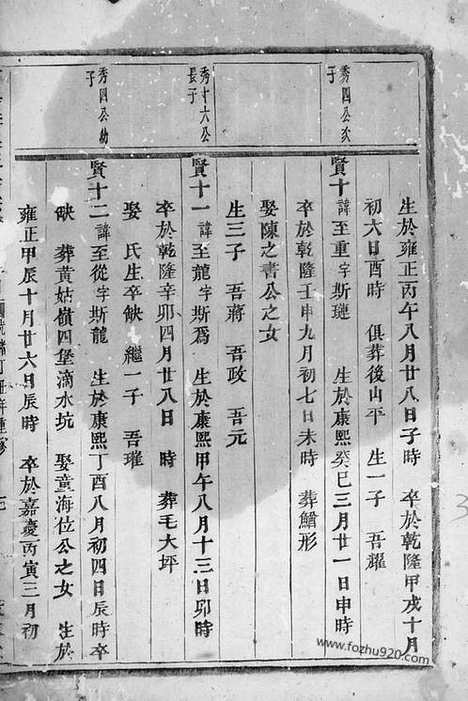 生於雍正丙午八月廿八日子時　卒於乾隆甲戌十月
初六日酉時　俱葬後山平　生一子　吾耀
秀四公次子
賢十　諱至重字斯璉　生於康熙癸巳三月廿一日申時
卒於乾隆壬申九月初七日未時　葬鰌形
娶陳之書公之女
生三子　吾蔣　吾政　吾元
秀十六公長子
賢十一　諱至龍字斯爲　生於康熙甲午八月十三日卯時
卒於乾隆辛卯四月廿八日　時　葬毛大坪
娶　氏生卒缺　繼一子　吾璀
秀四公幼子
賢十二　諱至從字斯龍　生於康熙丁酉八月初四日辰時卒
缺　葬黃姑嶺四堡滴水坑　娶童海位公之女　生於
雍正甲辰十月廿六日辰時　卒於嘉慶丙寅三月初
www.fozhu920.com